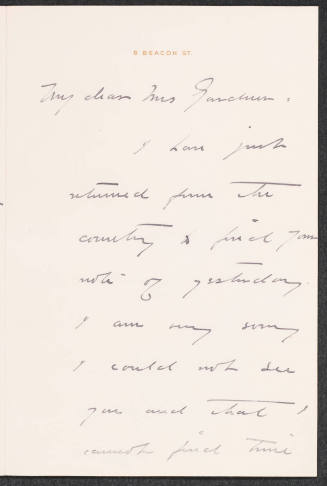 8 BEACON ST.
My dear Mrs Gardner.
I have just
returned from the
country & find your
note of yesterday.
I am very sorry
I could not see
you and that I
cannot find time